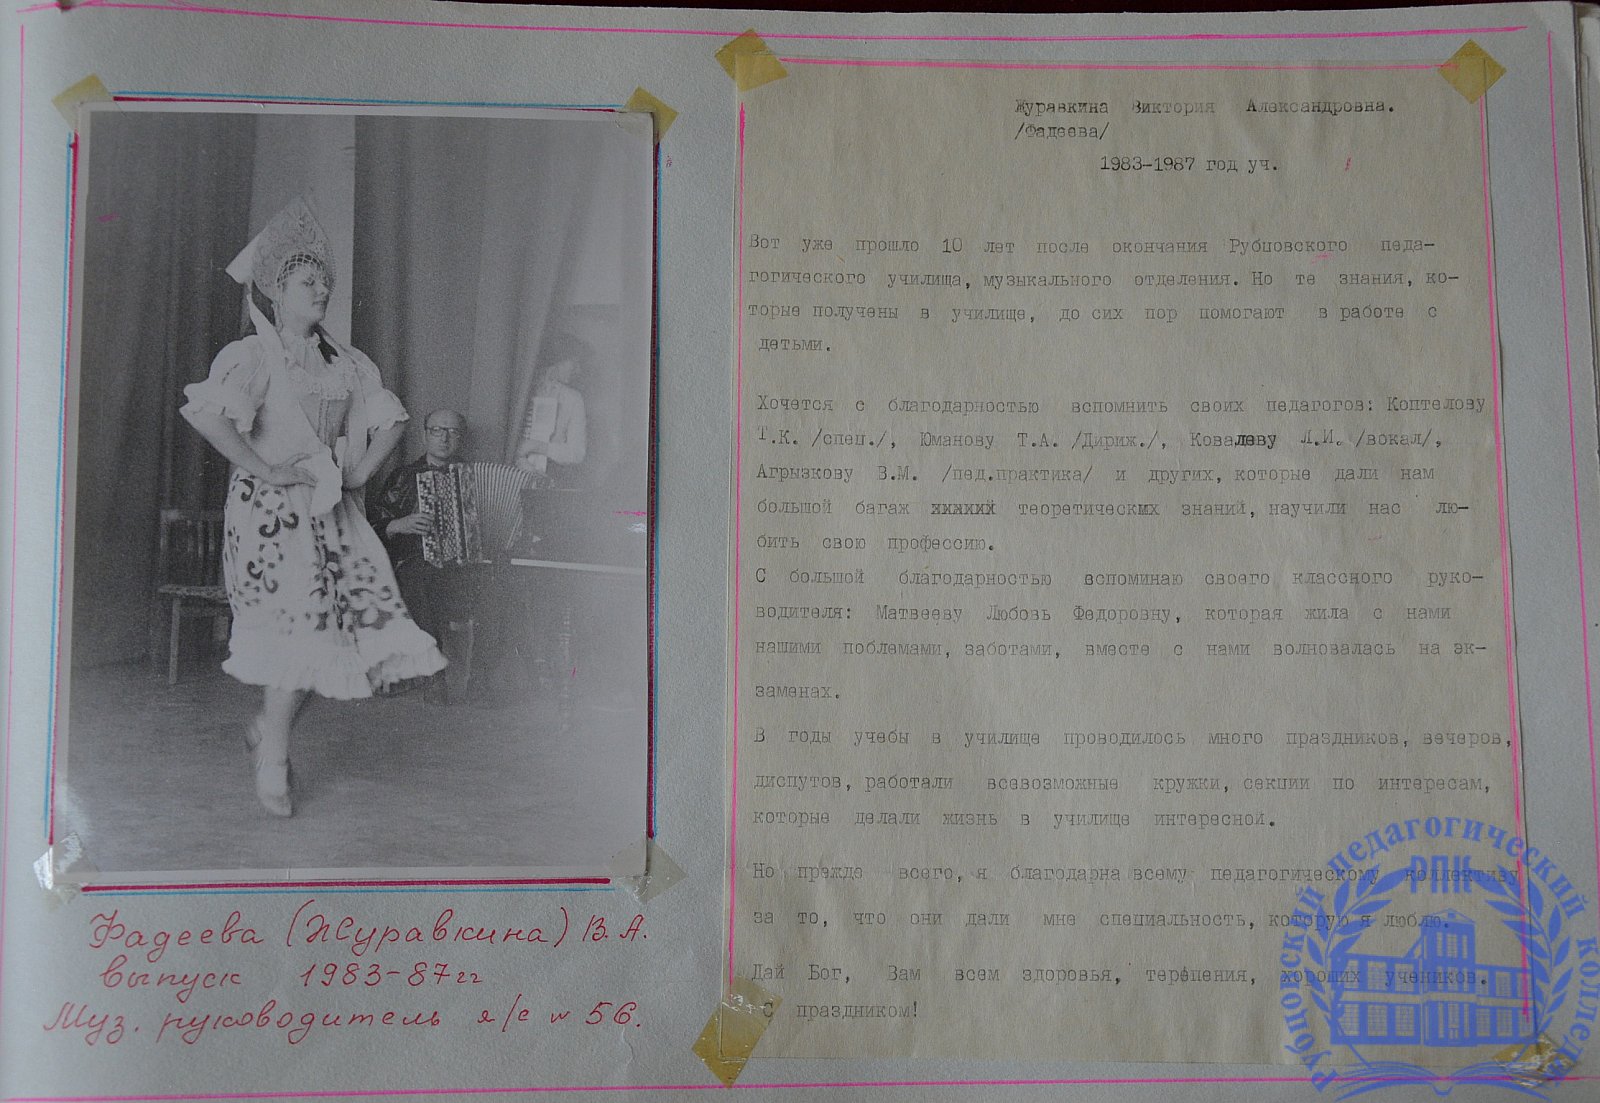 Фадеева (Журавкина) В. А.
выпуск 1983-87 гг
Муз. руководитель я/с № 56.
Журавкина Виктория Александровна.
/Фадеева/
1983-1987 год уч.
Вот уже прошло 10 лет после окончания Рубцовского педа-
гогического училища, музыкального отделения. Но те знания, ко-
торые получены в училище, до сих пор помогают в работе с
детьми.
Хочется с благодарностью вспомнить своих педагогов: Коптелову
Т.К. /спец./, Юманову Т.А. /Дириж./, Ковалеву Л.И. /вокал/,
Агрызкову В.М. /пед.практика/ и других, которые дали нам
большой багаж теоретических знаний, научили нас лю-
бить свою профессию.
С большой благодарностью вспоминаю своего классного руко-
водителя: Матвееву Любовь Федоровну, которая жила с нами
нашими поблемами, заботами, вместе с нами волновалась на эк-
заменах.
В годы учебы в училище проводилось много праздников, вечеров,
диспутов, работали всевозможные кружки, секции по интересам,
которые делали жизнь в училище интересной.
Но прежде всего, я благодарна всему педагогическому коллективу
за то, что они дали мне специальность, которую я люблю.
Дай Бог, Вам всем здоровья, терпения, хороших учеников.
С праздником!
Рубцовский педагогический колледж
РПК